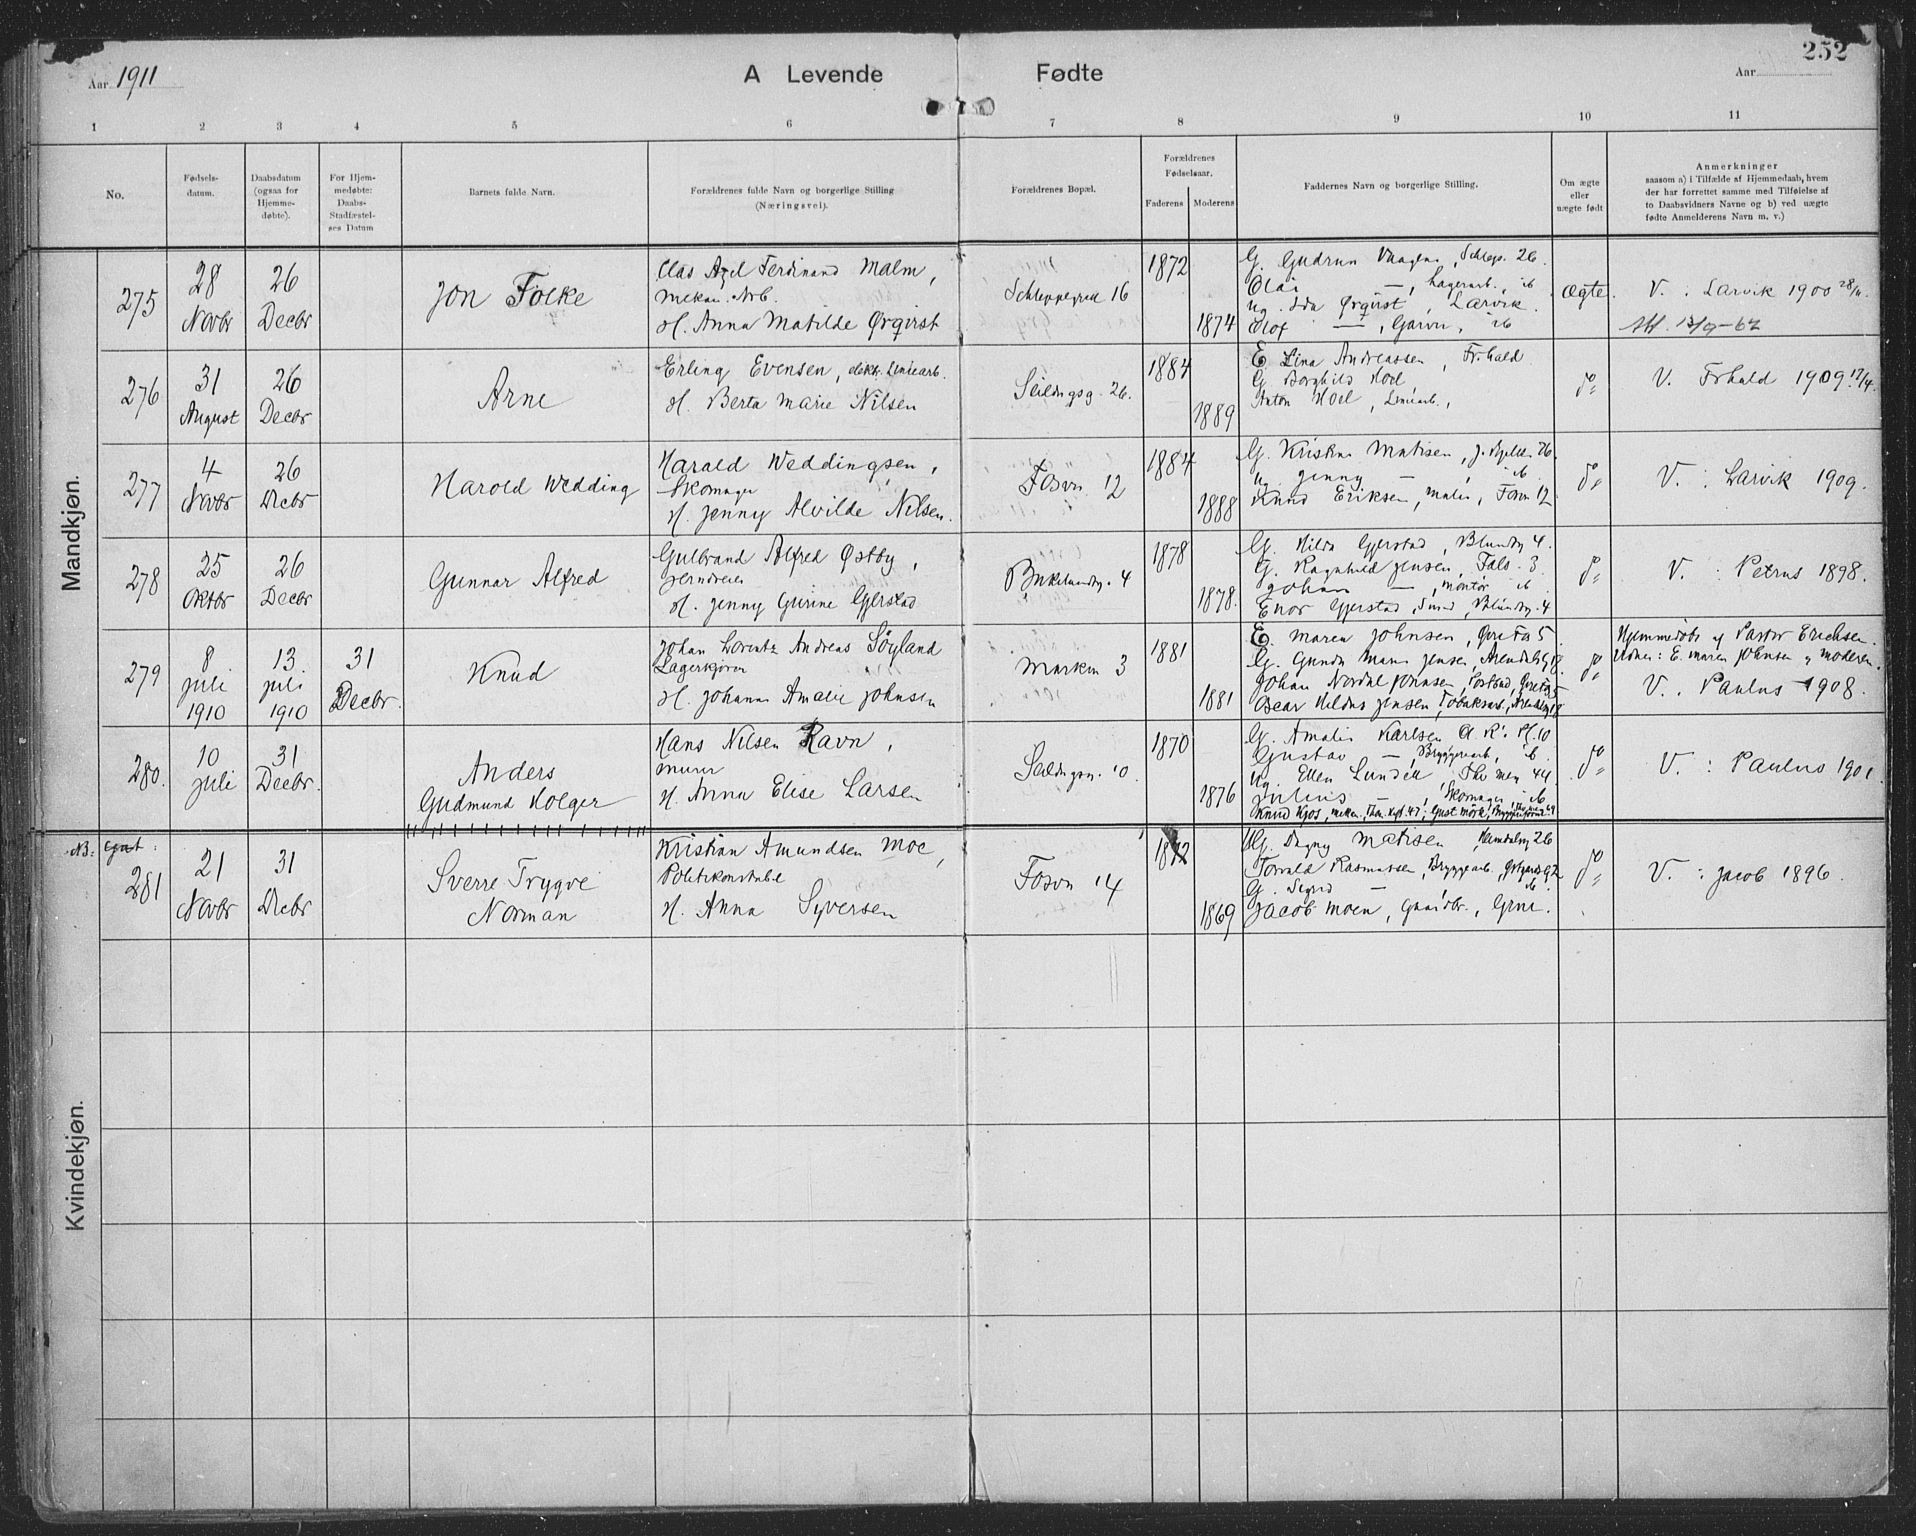 252
Aar 1911
A Levende Fødte
Aar
1 2 3 4 5 6 7 8 9 10 11
No.
Fødsels-
datum.
Daabsdatum
(ogsaa for
Hjemme-
døbte).
For Hjem-
medøbte:
Daabs-
Stadfæstel-
ses Datum
Barnets fulde Navn.
Forældrenes fulde Navn og borgerlige Stilling
(Næringsvei).
Forældrenes Bopæl.
Forældrenes
Fødselsaar.
Faderens
Moderens
Faddernes Navn og borgerlige Stilling.
Om ægte
eller
uægte født
Anmerkninger
saasom a) i Tilfælde af Hjemmedaab, hvem
der har forrettet samme med Tilføielse af
to Daabsvidners Navne og b) ved uægte
fødte Anmelderens Navn m. v.)
Mandkjøn.
275
28
Novbr
26
Decbr
Jon Folke
Clas Axel Ferdinand Malm,
mekan. Arb.
H. Anna Matilde Ørqvist
Schleppegred 16
1872
1874
G. Gudrun Vaagen, Schlep. 26.
Olai — , Lagerarb., ib
Ug. Ida Ørqvist, Larvik.
Olof — , Garvr, ib
Ægte.
V. : Larvik 1900 28/11
Att. 13/9-62
276
31
August
26
Decbr
Arne
Erling Evensen, elektr. Liniearb.
H. Berta Marie Nilsen
Seildugsg. 26.
1884
1889
E. Lina Andreassen, Fr.hald
G. Borghild Hoel,
Anton Hoel, Liniearb.,
do
V. Frhald 1909 12/4.
277
4
Novbr
26
Decbr
Harold Wedding
Harald Weddingsen,
Skomager
H. Jenny Alvilde Nilsen.
Fosvn 12
1884
1888
G. Kristine Matisen,
Ug. Jenny — ib
Knud Eriksen, Maler, Fosvn 12
do
V. : Larvik 1909.
278
25
Oktbr
26
Decbr
Gunnar Alfred
Gulbrand Alfred Østby,
Jerndreier
H. Jenny Gurine Gjerstad
Birkelundg. 4
1878
1878.
G. Hilda Gjerstad, Blundg 4.
G. Ragnhild Jensen, Fals. 3
Johan — , Montør ib
Enor Gjerstad, Smed, Blundg. 4
do
V. : Petrus 1898.
279
8
Juli
1910
13.
Juli
1910
31
Decbr.
Knud
Johan Lorentz Andreas Søyland
Lagerkjører
H. Johanne Amalie Johnsen
Marken 3
1881
1881
E. Maren Johnsen, 5.
G. Gunda Marie Jensen, Arendalsg 18.
Johan Nordal Johnsen, Postbud, 5
Oscar Hildus Jensen, Tobaksarb., Arendalsg 18
do
Hjemmedøbt af Pastor Erichsen.
Vidner: E. Maren Johnsen og Moderen.
V. Paulus 1908.
280.
10
Juli
31
Decbr.
Anders
Gudmund Holger
Hans Nilsen Ravn,
Murer
H. Anna Elise Larsen
Seildugsgn. 10
1870
1876
G. Amalie Karlsen A. R. Pl. 10
Gustav — , Bryggeriarb., ib.
Ug. Ellen Lundell, Thv. Mey 44
Julius — , Skomager ib
Knud Kjos, meken., Thv. Mey. 47; Gust Mørk,
do
V. : Paulus 1901.
Kvindekjøn.
NB: Gut:
281
21
Novbr
31
Decbr
Sverre Trygve
Norman
Kristian Amundsen Moe,
Politikonstabel
H. Anna Syversen
Fosvn 14
1872
1869
Ug. Dagny Matisen, Heimdalsg 26
Torvald Rasmussen, Bryggearb,
G. Sigrid — ib.
Jacob Moen, Gaardbr., Grue.
do
V. : Jacob 1896.